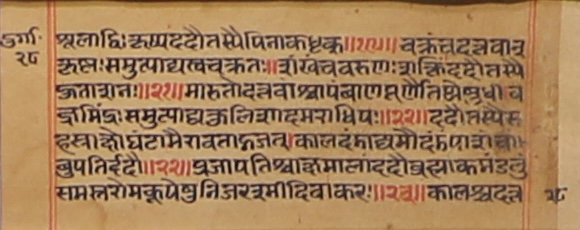 दुर्गा
२८
शूलाद्विःकृष्यददौतस्यैपिनाकधृक्॥१९॥चक्रंचदत्तवान्
कृष्णःसमुत्पाद्यस्वचक्रतः॥शंखंचवरुणःशक्तिंददौतस्यै
हुताशनः॥२०॥मारुतोदत्तवांश्चापंबाणपूर्णेतथेषुधीव
ज्रमिंद्रःसमुत्पाद्यकुलिशादमराधिपः॥२१॥ददौतस्यैस
हस्राक्षोघंटामैरावताद्गजात्कालदंडाद्यमोदंडंपाशंचां
बुपतिर्ददौ॥२२॥प्रजापतिश्चाक्षमालांददौब्रह्माकमंडलुं
समस्तरोमकूपेषुनिजरश्मीदिवाकरः॥२३॥कालश्चदत्त
२८